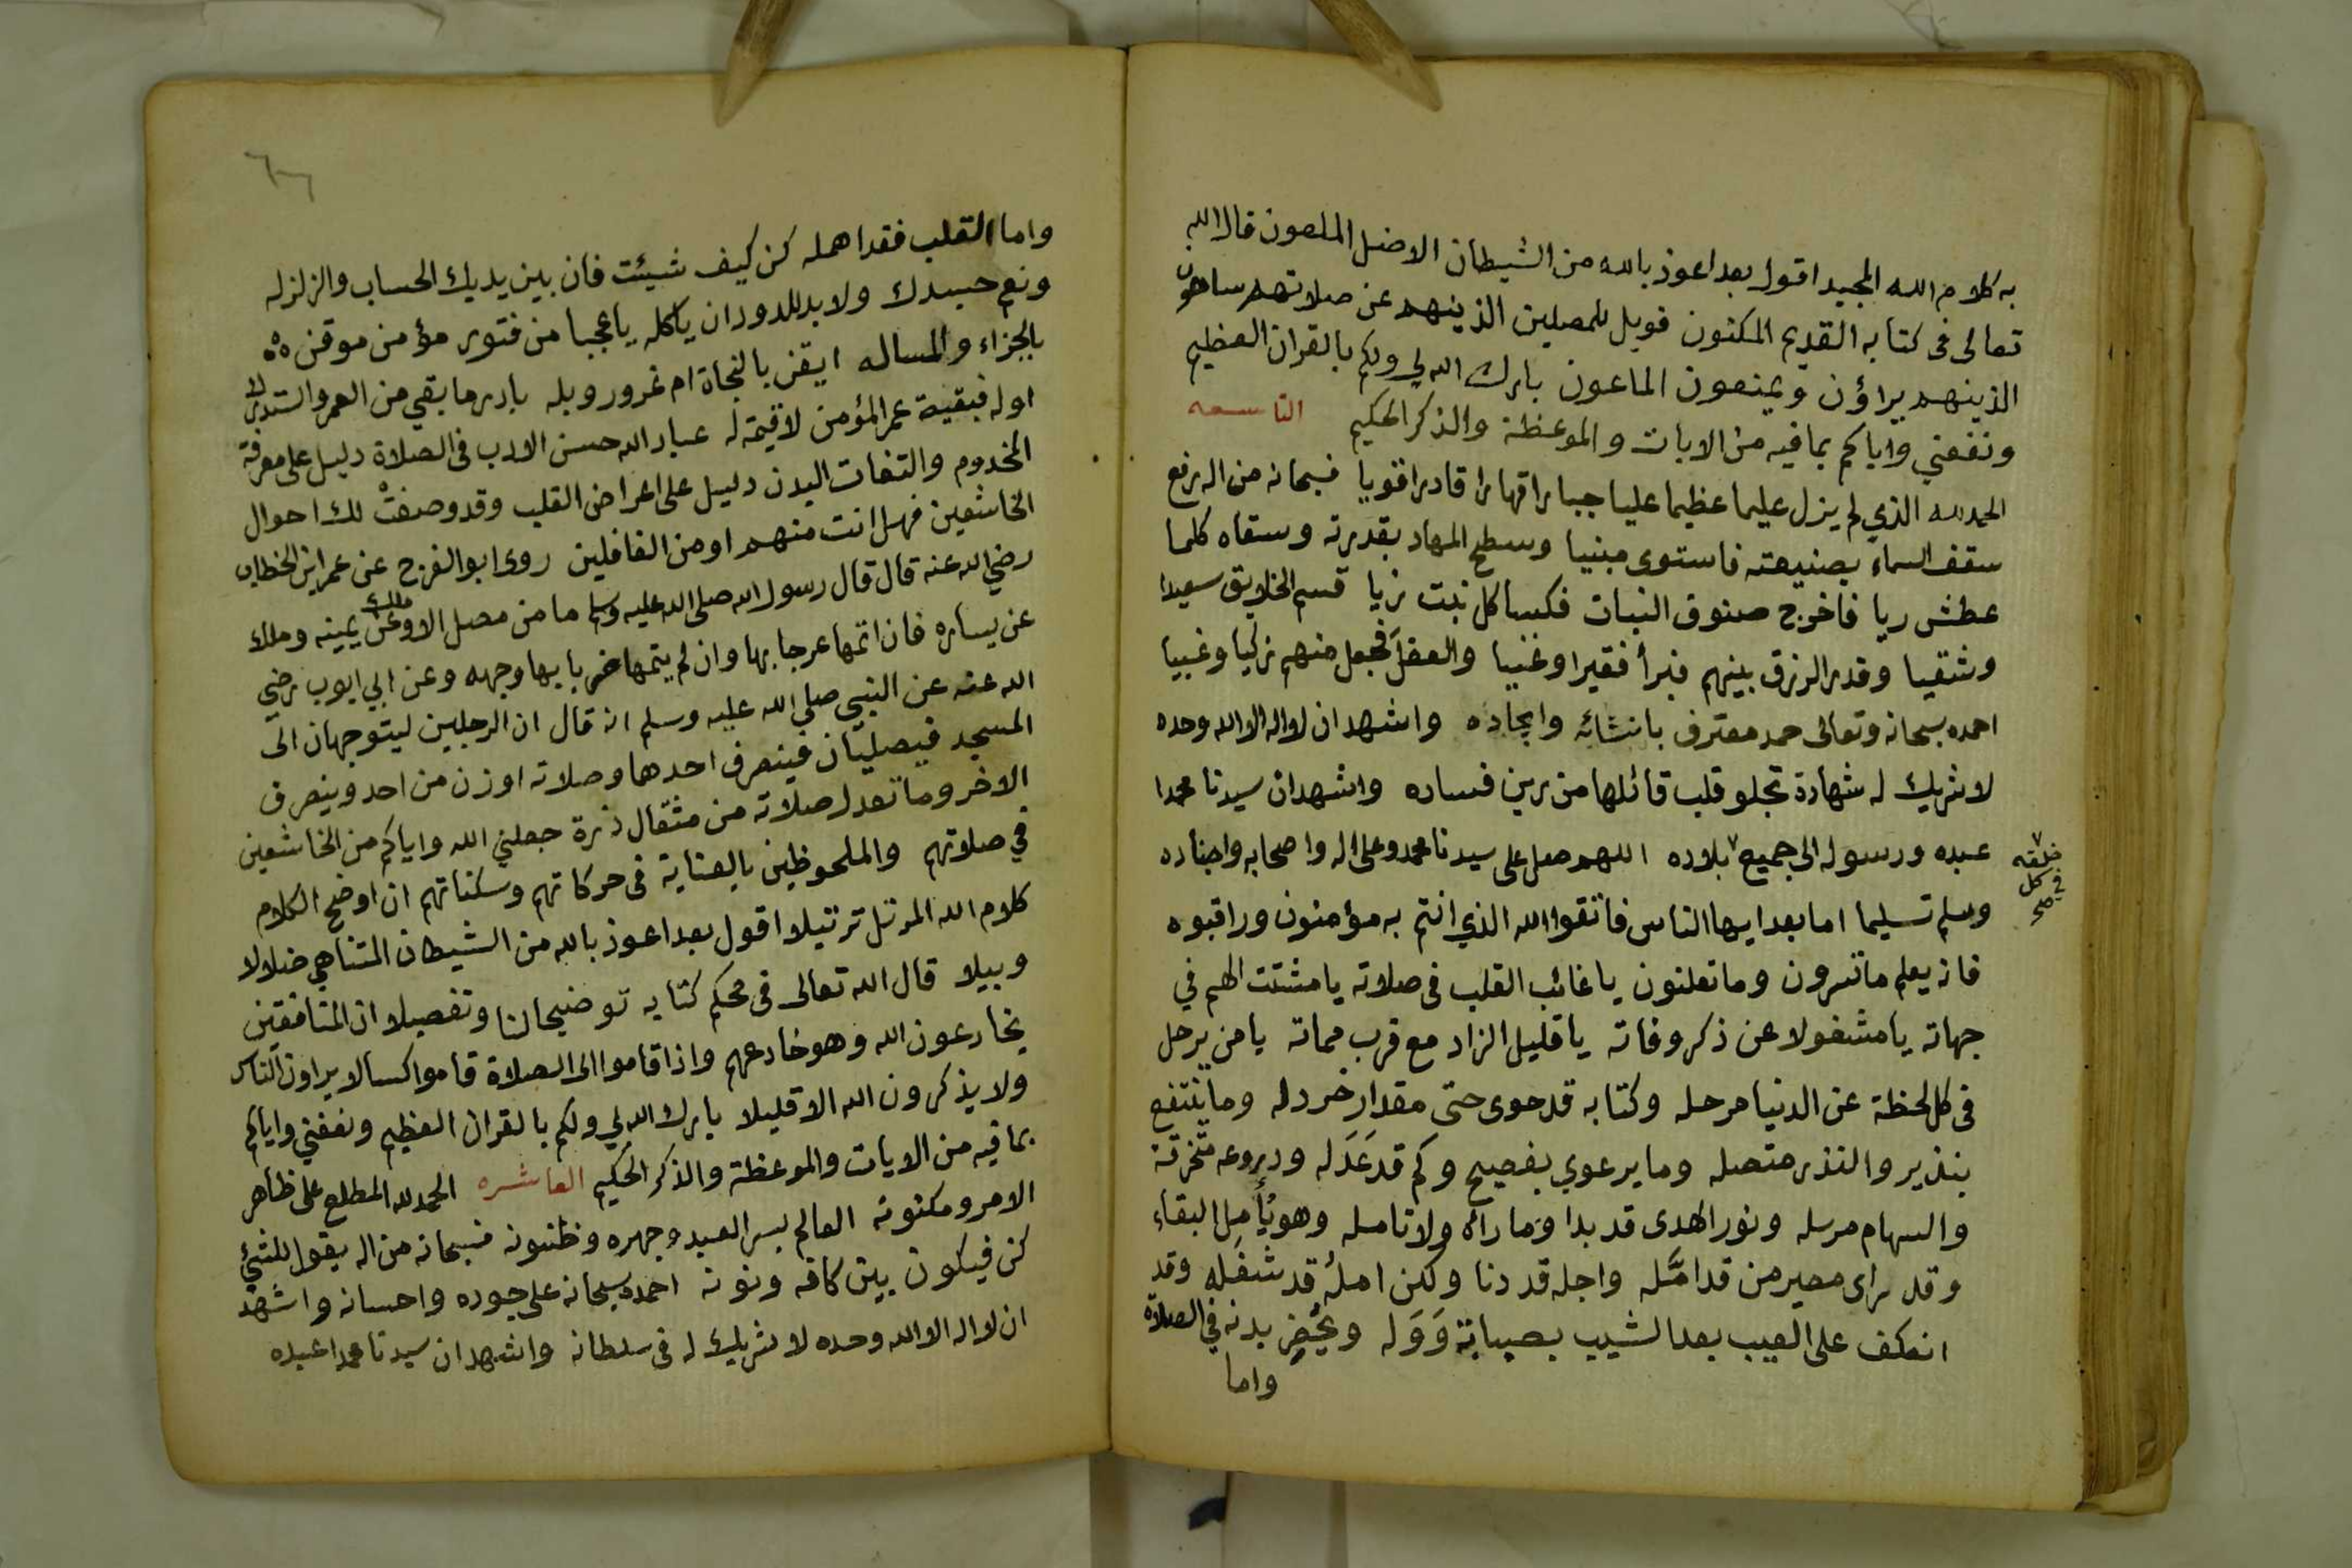 به كلام الله المجيد اقول بعد اعوذ بالله من الشيطان الاضل الملعون قال الله
تعالى فى كتابه القديم المكنون فويل للمصلين الذينهم عن صلاتهم ساهون
الذينهم يراؤن ويمنعون الماعون بارك الله لي ولكم بالقران العظيم
ونفعني واياكم بما فيه من الايات والموعظة والذكر الحكيم التاسعه
الحمد لله الذي لم يزل عليما عظيما عليا جبارا قهارا قادرا قويا فسبحانه من اله رفع
سقف السماء بصنيعته فاستوى مبنيا وسطح المهاد بقدرته وسقاه كلما
عطش ريا فاخرج صنوف النبات فكسا كل نبت زيا قسم الخلايق سعيدا
وشقيا وقدر الرزق بينهم فبرأ فقيرا وغنيا والعقل فجعل منهم زكيا وغبيا
احمده سبحانه وتعالى حمد معترف بانشائه وايجاده واشهد ان لا اله الا الله وحده
لا شريك له شهادة تجلو قلب قائلها من رين فساده واشهد ان سيدنا محمدا
عبده ورسوله الى جميع بلاده اللهم صل على سيدنا محمد وعلى اله واصحابه واجناده
خلقه
في كل
صح
وسلم تسليما اما بعد ايها الناس فاتقوا الله الذي انتم به مؤمنون وراقبوه
فانه يعلم ما تسرون وما تعلنون يا غائب القلب فى صلاته يا مشتت الهم في
جهاته يا مشغولا عن ذكر وفاته يا قليل الزاد مع قرب مماته يا من يرحل
فى كل لحظة عن الدنيا مرحله وكتابه قد حوى حتى مقدار خردله وما ينتفع
بنذير والنذر متصله وما يرعوي بفصيح وكم قد عَدَله ودروعه متخرقة
والسهام مرسله ونور الهدى قد بدا وما رآه ولا تامله وهو يُأمِل البقاء
وقد راى مصير من قد امَّله واجله قد دنا ولكن املُه قد شغله وقد
انعكف على العيب بعد الشيب بصبابة وَوَله ويحُضِر بدنه في الصلاة
واما
٦٦
واما القلب فقد اهمله كن كيف شيئت فان بين يديك الحساب والزلزله
ونعم حسدك ولا بد للدود ان ياكله يا عجبا من فتور مؤمن موقن
بالجزاء والمساله ايقن بالنجاة ام غرور وبله بادر ما بقي من العمر واستدرك
اوله فبقية عمر المؤمن لا قيمة له عباد الله حسن الادب فى الصلاة دليل على معرفة
المخدوم والتفات البدن دليل على اعراض القلب وقد وصفتْ لك احوال
الخاشعين فهل انت منهم او من الغافلين روى ابو الفرج عن عمر ابن الخطاب
رضي الله عنه قال قال رسول الله صلى الله عليه وسلم ما من مصل الا وملك عن يمينه وملك
عن يساره فان اتمها عرجا بها وان لم يتمها ضربا بها وجهه وعن ابي ايوب رضي
الله عنه عن النبي صلى الله عليه وسلم انه قال ان الرجلين ليتوجهان الى
المسجد فيصليان فينصرف احدهما وصلاته اوزن من احد وينصرف
الاخر وما تعدل صلاته من مثقال ذرة جعلني الله واياكم من الخاشعين
في صلاتهم والملحوظين بالعناية فى حركاتهم وسكناتهم ان اوضح الكلام
كلام الله المرتل ترتيلا اقول بعد اعوذ بالله من الشيطان المتناهي ضلالا
وبيلا قال الله تعالى فى محكم كتابه توضيحا لنا وتفصيلا ان المنافقين
يخادعون الله وهو خادعهم واذا قاموا الى الصلاة قاموا كسالا يراون الناس
ولا يذكرون الله الا قليلا بارك الله لي ولكم بالقران العظيم ونفعني واياكم
بما فيه من الايات والموعظة والذكر الحكيم العاشره الحمد لله المطلع على ظاهر
الامر ومكنونه العالم بسر العبد وجهره وظنونه فسبحانه من اله يقول للشئ
كن فيكون بين كافه ونونه احمده سبحانه على جوده واحسانه واشهد
ان لا اله الا الله وحده لا شريك له فى سلطانه واشهد ان سيدنا محمدا عبده